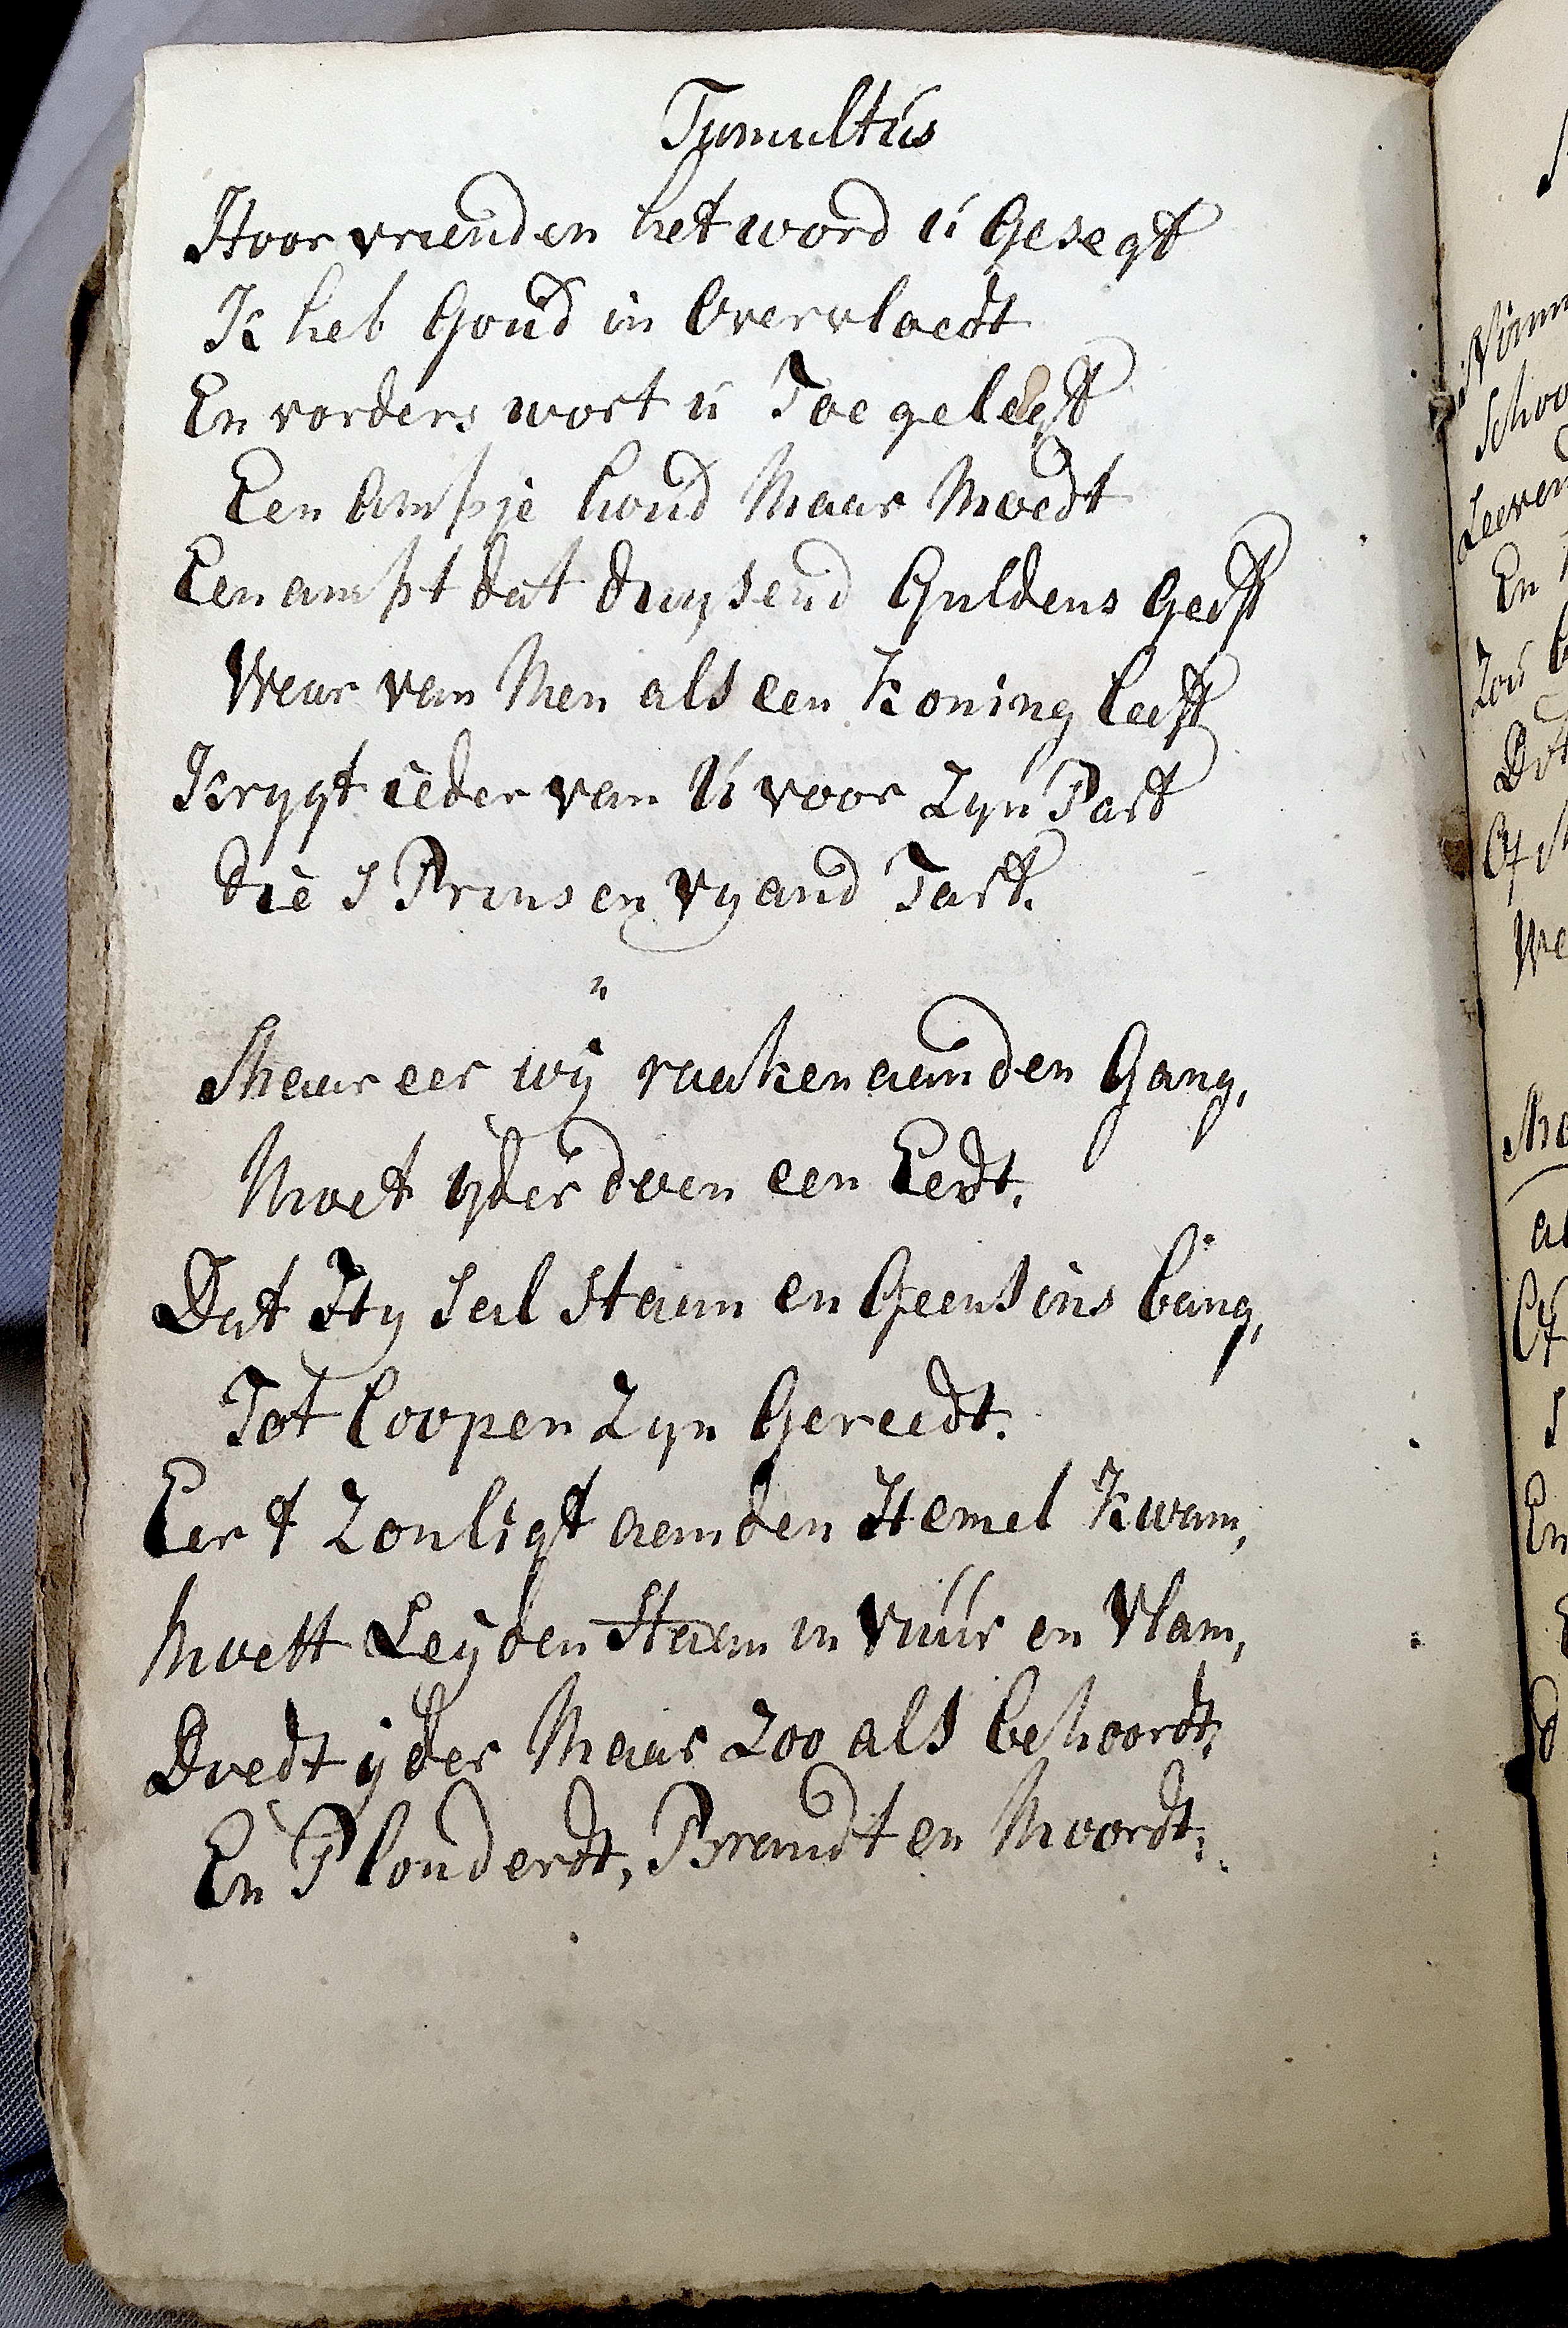 Tumultus
Hoor vrienden het word u Gesegt
Ik heb Goud in Overvloedt
En vorders wort u Toe gelegt
Een Ampje houd Maar Moedt
Een ampt dat duysend Guldens Geeft
Waar van Men als een Koning leeft
Krygt ieder van U voor Zyn Part
die S Prinsen vyand Tart.
Maar eer wij raaken aan den Gang,
Moet yder doen een Eedt,
Dat Hy Sal Staan en Geensins bang,
Tot loopen Zyn Gereedt.
Eer t Zonligt aan den Hemel Kwam,
Moett Leyden Staan in Vuur en Vlam,
Doedt yder Maar Zoo als behoordt,
En Plonderdt, Brandt en Moordt.